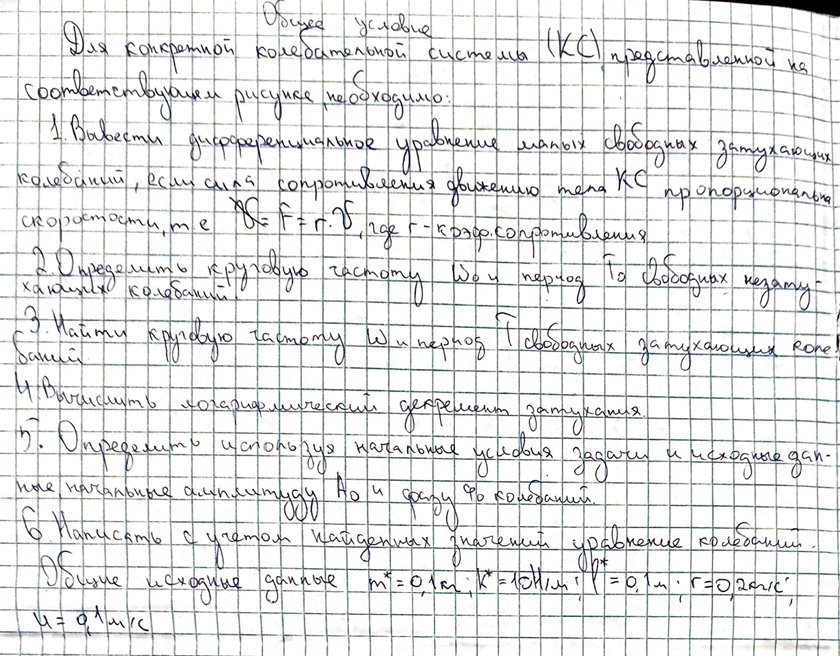 Общее условие
Для конкретной колебательной системы (КС), представленной на
соответствующем рисунке, необходимо:
1. Вывести дифференциальное уравнение малых свободных затухающих
колебаний, если сила сопротивления движению тела КС пропорциональна
скоростости, т е F = r·V, где r - коэф. сопротивления
2. Определить круговую частоту W₀ и период T₀ свободных незату-
хающих колебаний.
3. Найти круговую частоту W и период T свободных затухающих коле
баний.
4 Вычислить логарифмический декремент затухания.
5. Определить используя начальные условия задачи и исходные дан-
ные, начальные амплитуду A₀ и фазу φ₀ колебаний.
6 Написать с учетом найденных значений уравнение колебаний.
Общие исходные данные m* = 0,1кг; k* = 10Н/м; l* = 0,1м; r = 0,2кг/с;
u = 0,1м/с